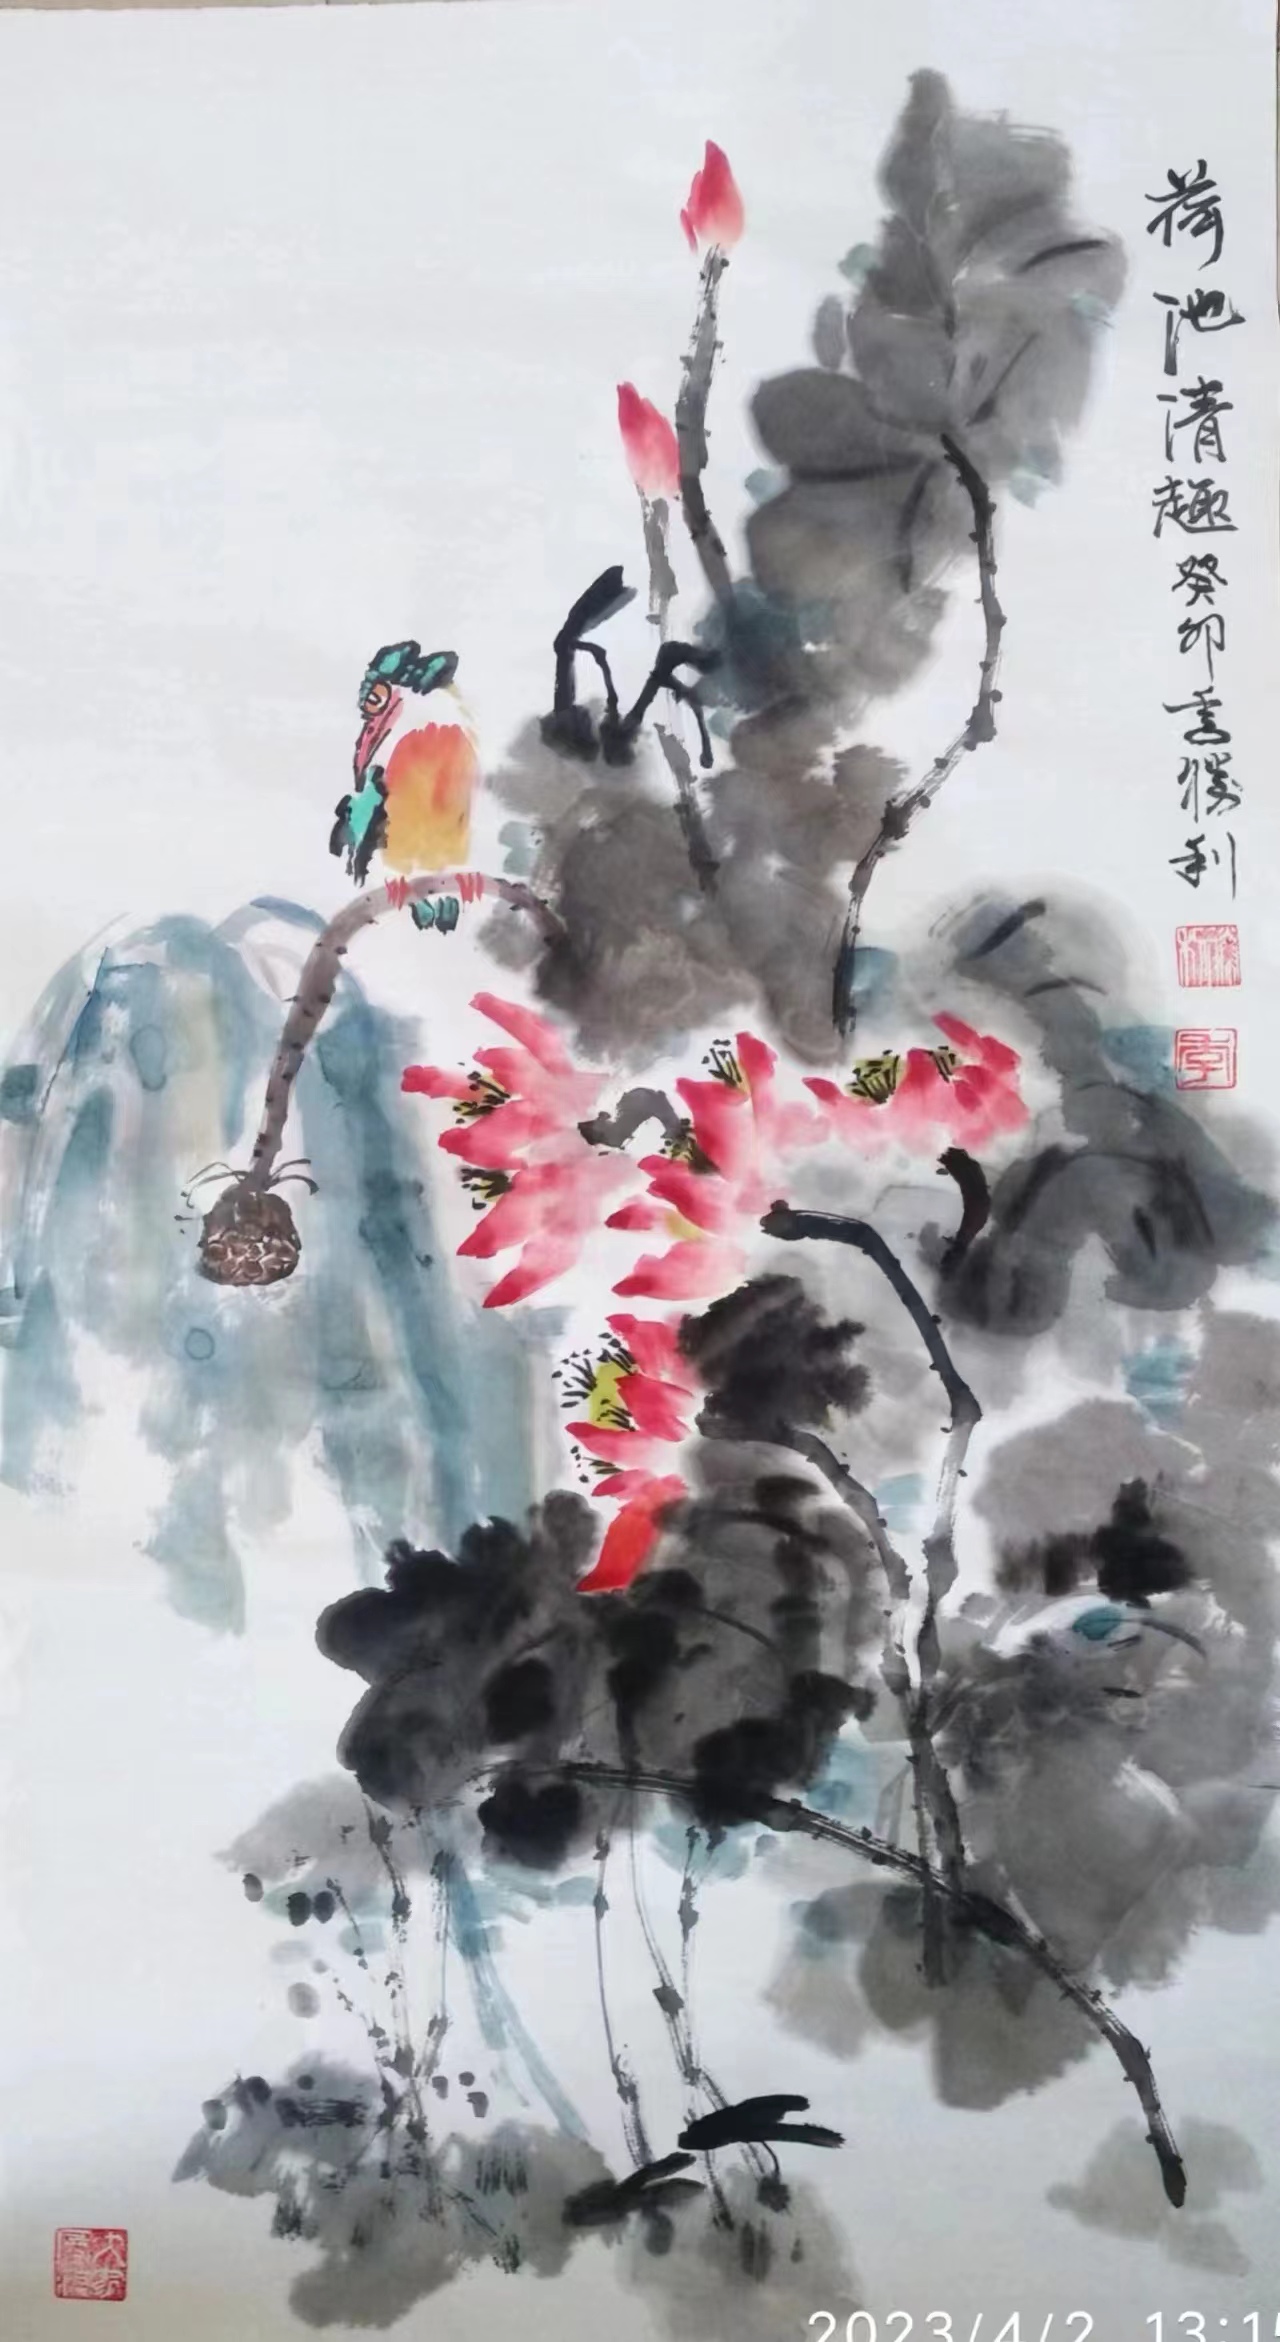 荷池清趣 癸卯 李勝利
2023/4/2 13:15